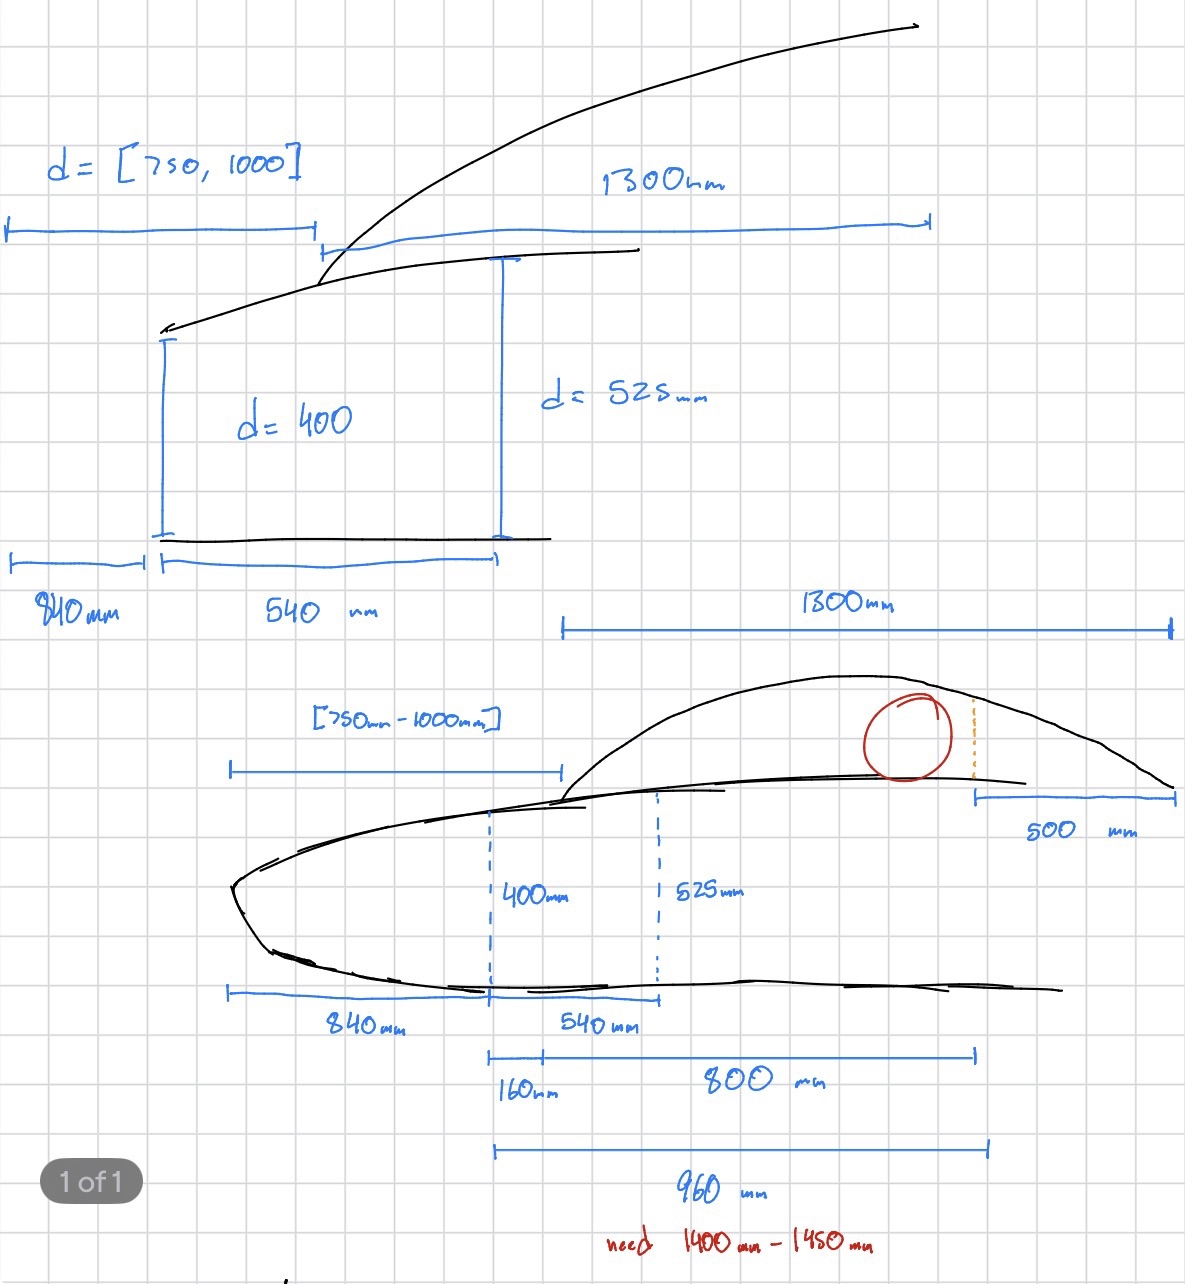 d= [750, 1000]
1300mm
d= 400
d= 525mm
840mm
540 mm
1300mm
[750mm-1000mm]
500 mm
400mm
525mm
840mm
540mm
160mm
800 mm
960 mm
need 1400mm-1450mm
1 of 1